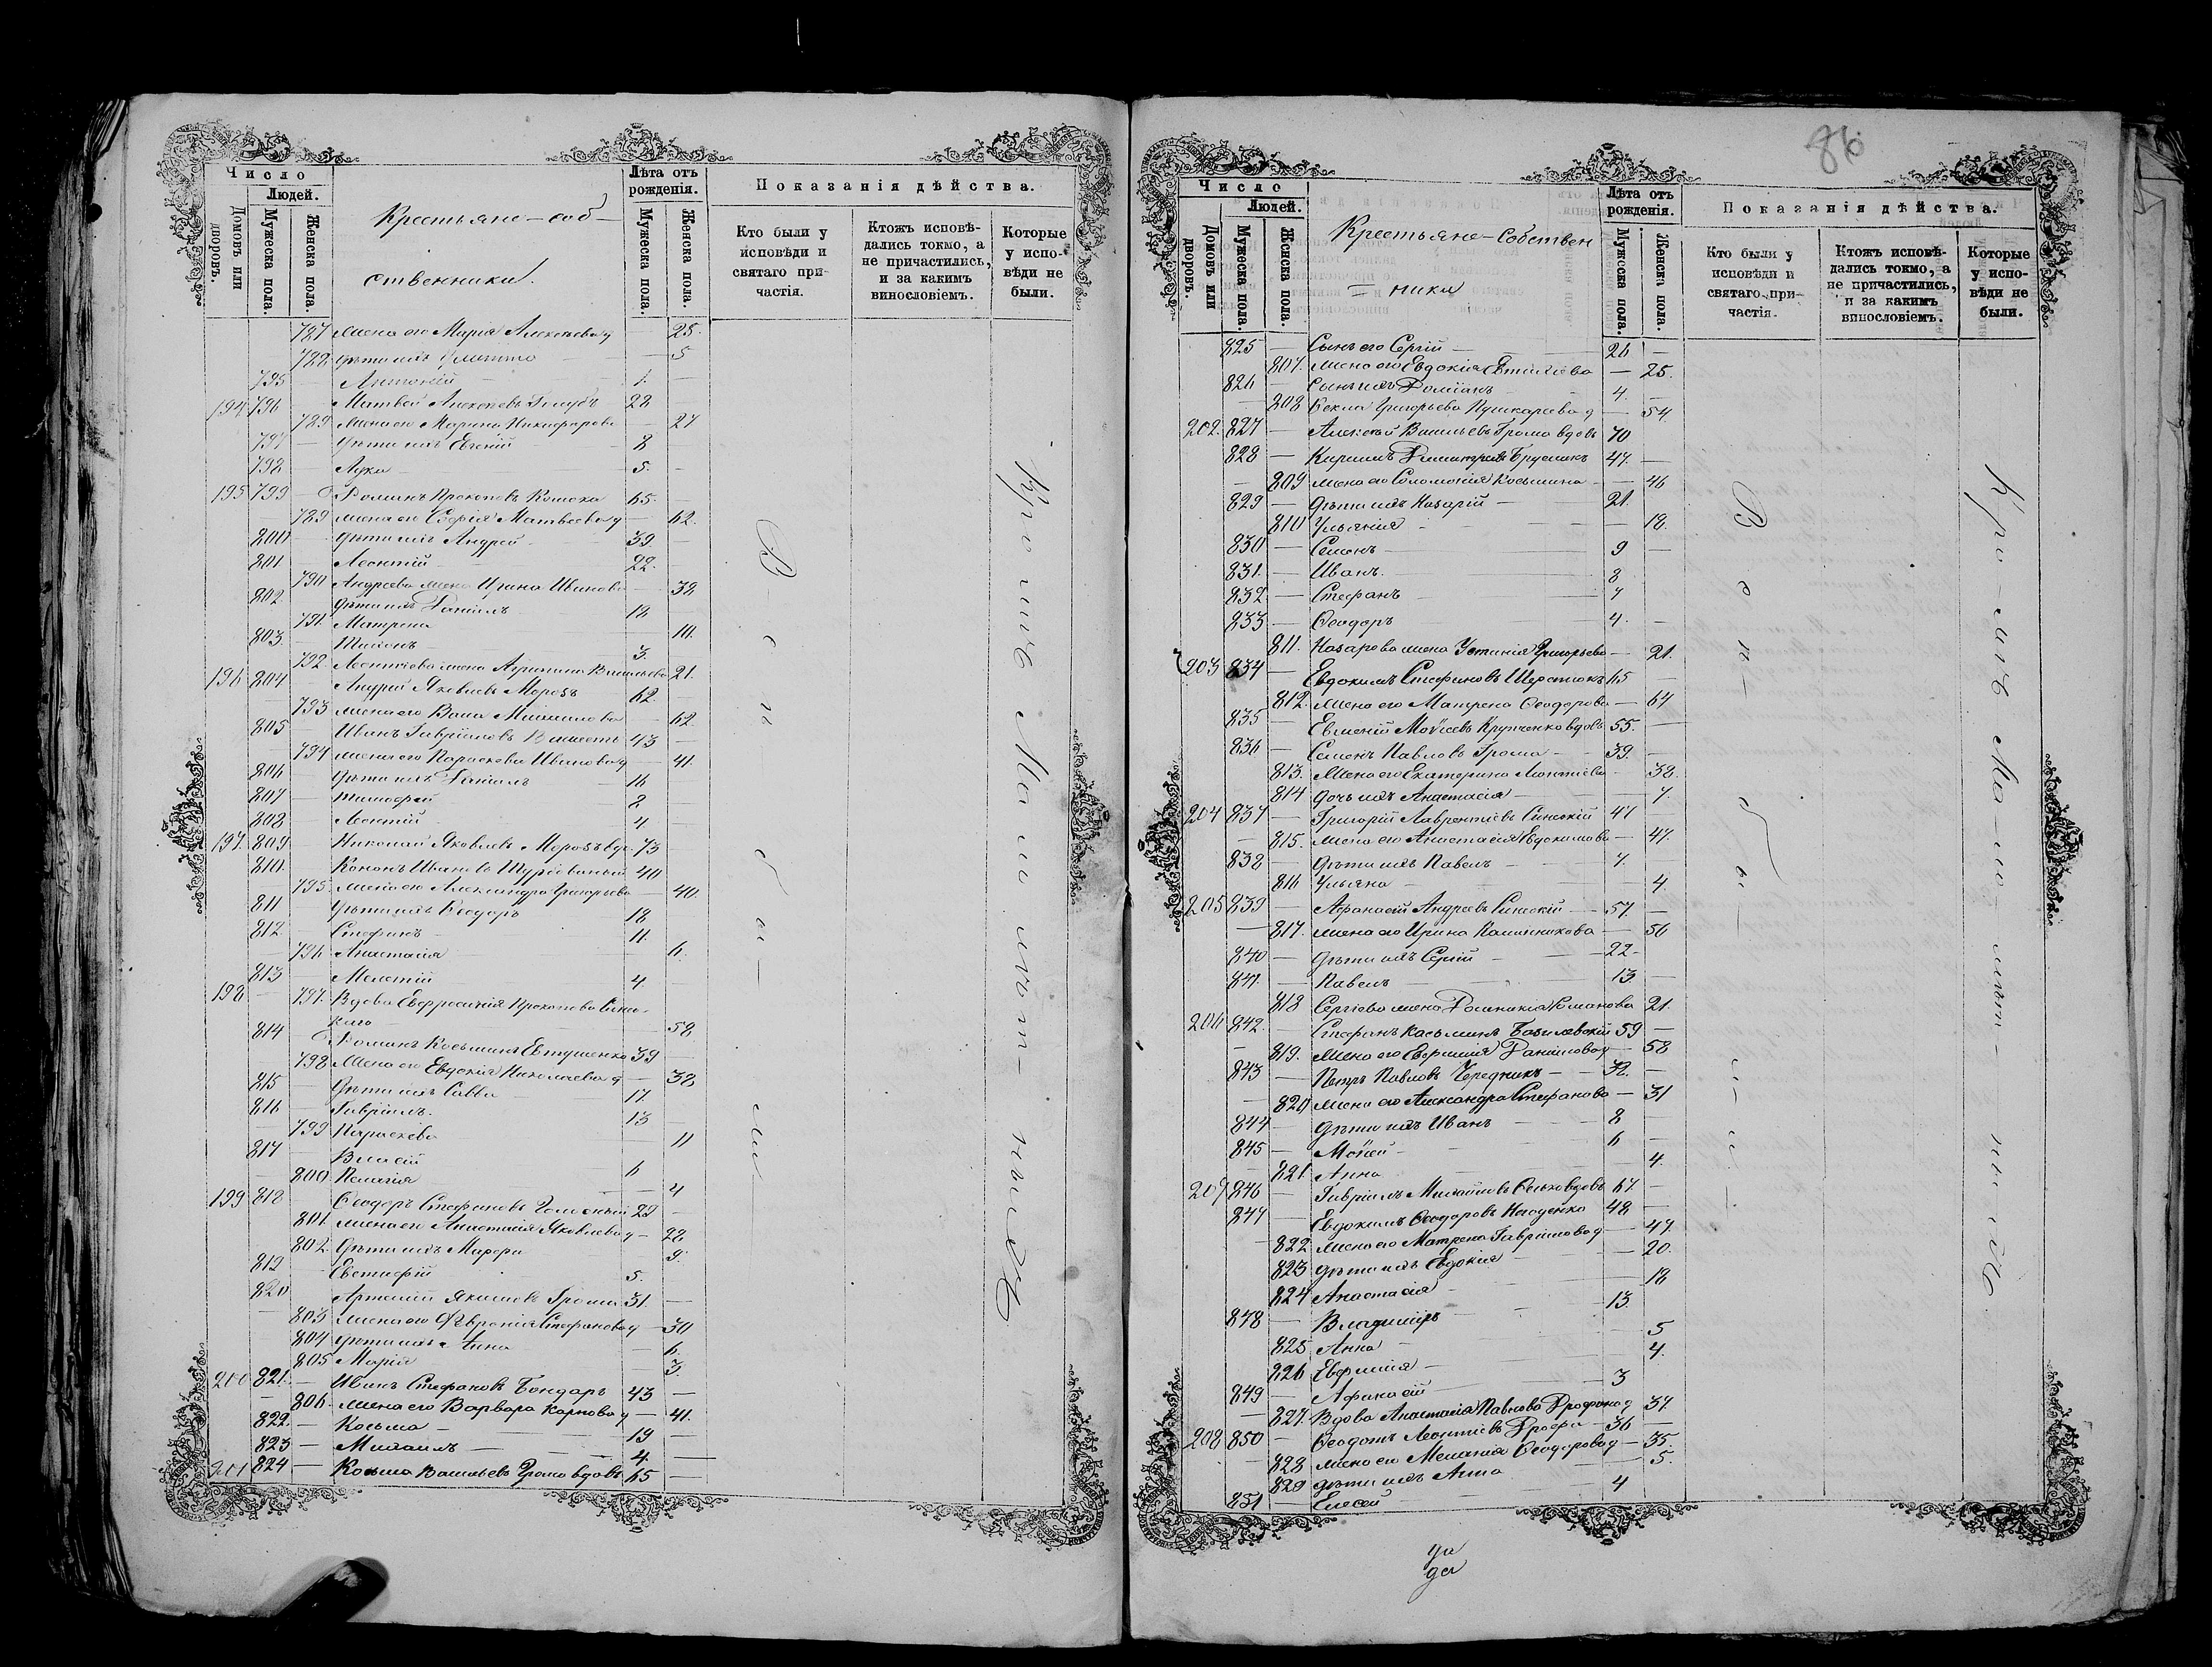 Число
Людей.
Домовъ или дворовъ.
Мужеска пола.
Женска пола.
Крестьяне-соб-
ственники.
Лѣта отъ рожденія.
Мужеска пола.
Женска пола.
Показанія дѣйства.
Кто были у исповѣди и святаго причастія.
Ктожъ исповѣдались токмо, а не причастились, и за какимъ винословіемъ.
Которые у исповѣди не были.
787 жена его Марія Алексѣева 25.
788 дѣти ихъ 5
795 — Антоній 1.
194 796 Матвей Алексѣевъ Голубъ 28
789 жена его Марина Никифорова 27
797 — дѣти ихъ Евгеній 8
798 — Лука 5.
195 799 — Романъ Прокоповъ 65.
789 жена его Софія Матвеева 62.
800 дѣти ихъ Андрей 39
801 Леонтій 22.
790 Андреева жена Ирина Иванова 38
802 дѣти ихъ Даніилъ 18
791 Матрена 10.
803 3
792 Леонтіева жена Агрипина Васильева 21.
196 804 Андрей Яковлевъ Морозъ 62.
793 жена его 62
805 Иванъ Гавріиловъ 43
794 жена его Параскева Иванова 41.
806 дѣти ихъ Даніилъ 16
807 Тимофей 8
808 Леонтій 4
197. 809 Николай Яковлевъ Морозъ вд. 73
810. Кононъ Ивановъ 40
795. жена его Александра Григорьева 40
811 дѣти ихъ Ѳеодоръ 18
812. Стефанъ 11.
796 Анастасія 6.
813 Мелетій 4
198 797. Вдова Евфросинія Прокопова
58
814 Романъ Косьминъ Евтушенко 39
798 жена его Евдокія Николаева 38
815 дѣти ихъ Савва 17
816 Гавріилъ 13
799 Параскева 11
817 Власій 6
800 Пелагія 4
199 818 Ѳеодоръ Стефановъ 29
801. жена его Анастасія Яковлева 28
802. дѣти ихъ Марфа 9.
819 Евстафій 5.
820 Артемій Якимовъ Грома 31.
803 жена его Февронія Стефанова 30
804 дѣти ихъ Анна 6.
805 Марія 3.
200 821. — Иванъ Стефановъ Бондарь 43
806. жена его Варвара Карпова 41.
822. — Косьма 19
823 — Михаилъ 4.
201 824 — Косьма Васильевъ Грома вдовъ 65
Всѣ были
Кромѣ малолѣтнихъ
86
Число
Людей.
Домовъ или дворовъ.
Мужеска пола.
Женска пола.
Крестьяне-Собствен
= ники
Лѣта отъ рожденія.
Мужеска пола.
Женска пола.
Показанія дѣйства.
Кто были у исповѣди и святаго причастія.
Ктожъ исповѣдались токмо, а не причастились, и за какимъ винословіемъ.
Которые у исповѣди не были.
825 — Сынъ его Сергій 26
807. жена его Евдокія 25.
826 — Сынъ ихъ Даміанъ 4.
808 Ѳекла Григорьева Пушкарева 54.
202. 827 — Алексѣй Васильевъ Грома вдовъ 70
828 — Кириллъ Димитріевъ 47.
809 жена его Соломонія Косьмина 46
829 — дѣти ихъ Назарій 21.
810 Ульянія 18.
830 — Семенъ 9
831. — Иванъ 8
832 — Стефанъ 7
833 — Ѳеодоръ 4.
811. Назарова жена Устинія Григорьева 21.
203 834 — Евдокимъ Стефановъ Шерстюкъ 65
812. жена его Матрена Ѳеодорова 64
835 — Евменій Мойсеевъ Крупченко вдовъ 55.
836 — Семенъ Павловъ Грома 39.
813. жена его Екатерина Леонтіева 38.
814 дочь ихъ Анастасія 7.
204 837 — Григорій Лаврентіевъ 47
815. жена его Анастасія Евдокимова 47.
838 — дѣти ихъ Павелъ 7.
816 Ульяна 4.
205 839 — Афанасій Андреевъ 57.
817. жена его Ирина 56
840 — дѣти ихъ Сергій 22.
841. — Павелъ 13
818 Сергіева жена Домникія Романова 21.
206 842. — Стефанъ Косьминъ Базилевскій 59
819. жена его Евфимія Даніилова 58
843 — Петръ Павловъ Чередникъ 32.
820 жена его Александра Стефанова 31
844 — дѣти ихъ Иванъ 8
845 — Мойсей 6
821. Анна 4.
207 846 — Гавріилъ Михайловъ вдовъ 67.
847 — Евдокимъ Ѳеодоровъ Нагоденко 48
822 жена его Матрена Гавріилова 47.
823 дѣти ихъ Евдокія 20.
824 Анастасія 18
848 — Владиміръ 13
825 Анна 5
826 Евфимія 4.
849 — Афанасій 3
827. Вдова Анастасія Павлова 37
208 850 — Ѳеодотъ Леонтіевъ 36
828 жена его Меланія Ѳеодорова 35.
829 дѣти ихъ Анна 5.
851 — Елисей 4
Всѣ были
Кромѣ малолѣтнихъ